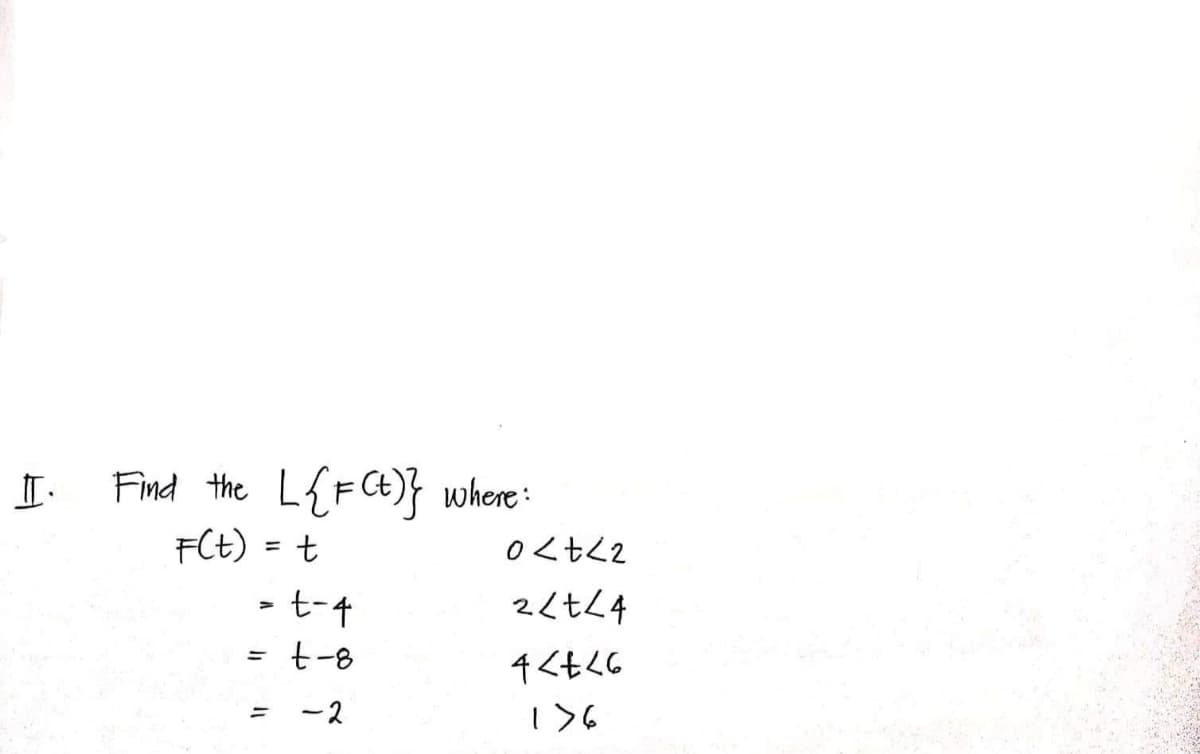 II. Find the L{F(t)} where:
F(t) = t 0<t<2
= t-4 2<t<4
= t-8 4<t<6
= -2 1>6